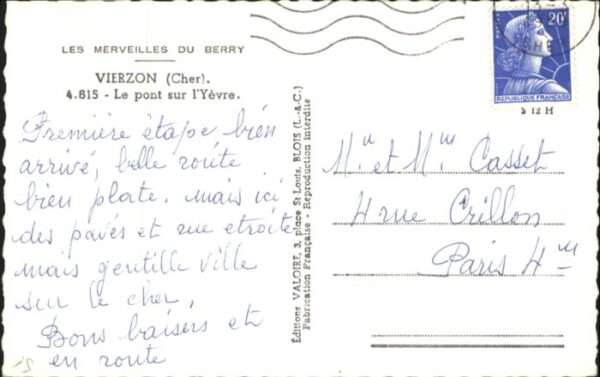 LES MERVEILLES DU BERRY
VIERZON (Cher).
4.815 - Le pont sur l'Yèvre.
Première étape bien
arrivé, belle route
bien plate. mais ici
des pavés et rue etroite
mais gentille ville
sur le cher,
Bons baisers et
en route
15
Éditions VALOIRE, 3, place St Louis, BLOIS (L.-&-C.)
Fabrication Française - Reproduction Interdite
20F
POSTES
REPUBLIQUE FRANÇAISE
S 12 H
CHER
Mr et Mme Casset
4 rue Crillon
Paris 4me